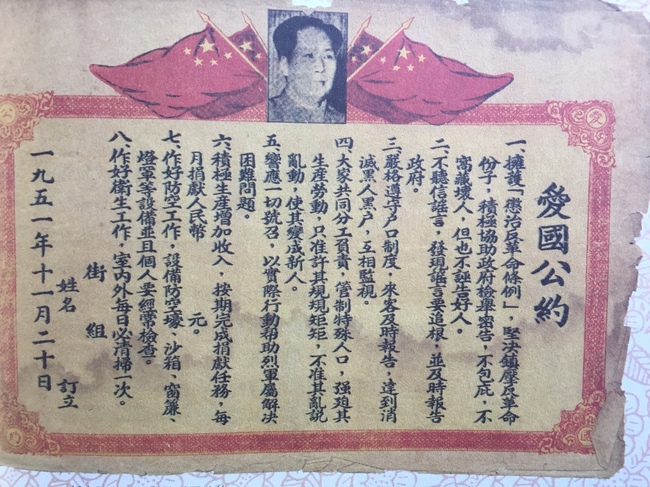 愛國公約
一、擁護「懲治反革命條例」，堅决鎮壓反革命
份子，積極協助政府檢舉密告，不包庇，不
窩藏壞人，但也不誣告好人。
二、不聽信謠言，發現謠言要追根，並及時報告
政府。
三、嚴格遵守户口制度，來客及時報告，達到消
滅黑人黑户，互相監視。
四、大家共同分工負責，管制特殊人口，强廹其
生產勞動，只准許其規規矩矩，不准其亂說
亂動，使其變成新人。
五、響應一切號召，以實際行動帮助烈軍屬解决
困難問題。
六、積極生產增加收入，按期完成捐獻任務，每
月捐獻人民幣　　　元。
七、作好防空工作，設備防空壕、沙箱、窗簾、
燈罩等設備並且個人要經常檢查。
八、作好衛生工作，室內外每日必清掃一次。
街　組
姓名　　　訂立
一九五一年十一月二十日